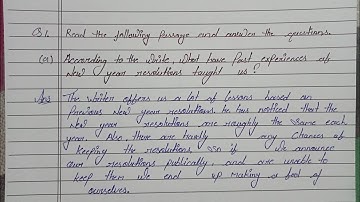 Q1. Read the following passage and answer the questions.
(a) According to the write, what have past experiences of
new year resolutions taught us?
Ans The writer offers us a lot of lessons based on
previous new year resolutions. he has noticed that the
new year resolutions are roughly the same each
year. Also, there are hardly any chances of
keeping the resolutions. even if we announce
our resolutions publically, and are unable to
keep them we end up making a fool of
ourselves.